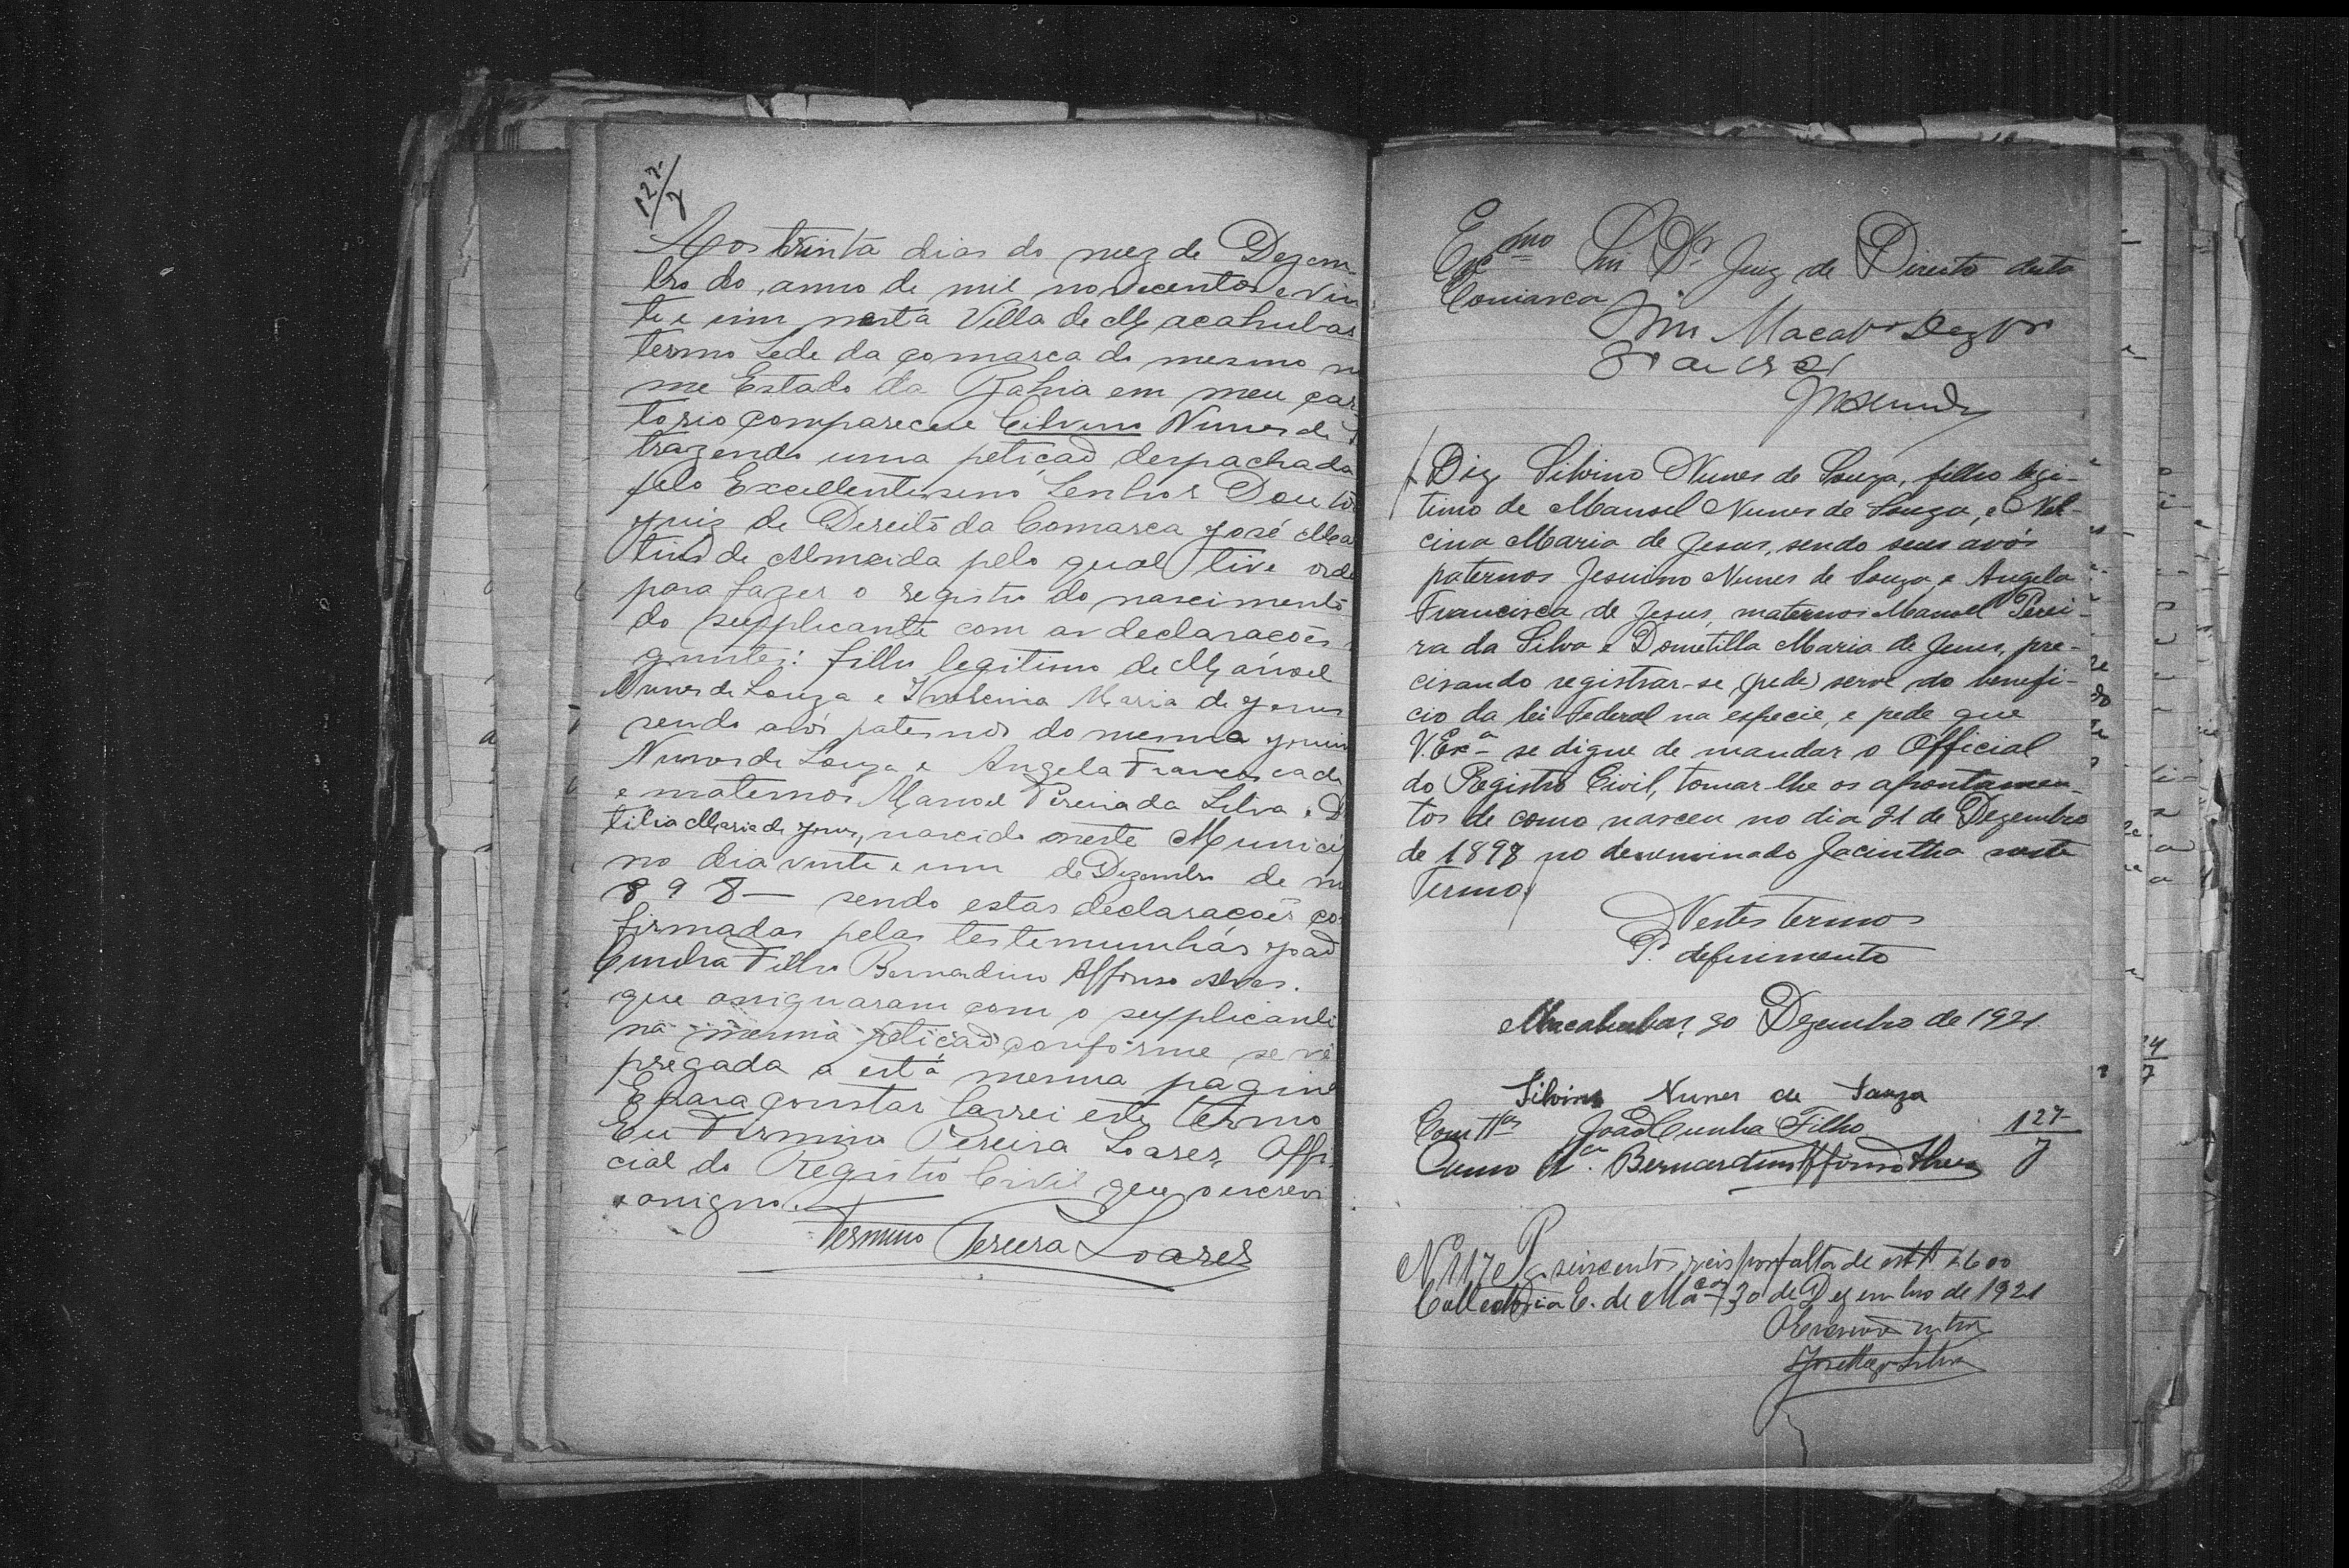 127
Aos trinta dias do mez de Dezem-
bro do anno de mil novecentos e vin
te e um nesta Villa de Macahubas
termo Sede da comarca do mesmo no
me Estado da Bahia em meu car-
torio compareceu Cilvino Nunes de
trazendo uma petição despachada
pelo Excellentissimo Senhor Doutor
Juiz de Direito da Comarca José Mar
tins de Almeida pelo qual tive orde
para fazer o registro do nascimento
do supplicante com as declarações
guintes: filho legitimo de Manoel
Nunes de Souza e Maria de Jesus
sendo avós paternos do mesmo
Nunes de Souza e Angela Francisca de
e maternos Manoel Pereira da Silva e D
tilia Maria de Jesus, nascido neste Municip
no dia vinte e um de Dezembro de m
898 — sendo estas declarações co
firmadas pelas testemunhas João
Cunha Filho Bernardino Affonso Alves.
que assignaram com o supplicante
na mesma petição conforme se vê
pregada a está mesma pagina
E para constar lavrei este termo
Eu Firmino Pereira Soares, Offi-
cial do Registro Civil que o escrevi
e assigno.
Firmino Pereira Soares
Exmo Snr Dr Juiz de Direito desta
Comarca
Sim Macabs Dezbro
30 de 1921
Diz Silvino Nunes de Souza, filho legi-
timo de Manoel Nunes de Souza, e
cina Maria de Jesus, sendo seus avós
paternos Jesuino Nunes de Souza e Angela
Francisca de Jesus, maternos Manoel Perei-
ra da Silva e Dometilla Maria de Jesus, pre-
cisando registrar-se (pede) serve do benefi-
cio da lei Federal na especie, e pede que
V. Exa se digne de mandar o Official
do Registro Civil, tomar-lhe os apontamen-
tos de como nasceu no dia 21 de Dezembro
de 1898 no denominado Jacintha neste
Termo.
Nestes termos
P. deferimento
Macahubas, 30 Dezembro de 1921
Silvino Nunes de Souza
Como tta João Cunha Filho
Como tta. Bernardino Affonso Alves
127
N 117 Pg seiscentos reis por falta de estt $600
Collectoria E. de Macas 30 de Dezembro de 1921
O Escrivão